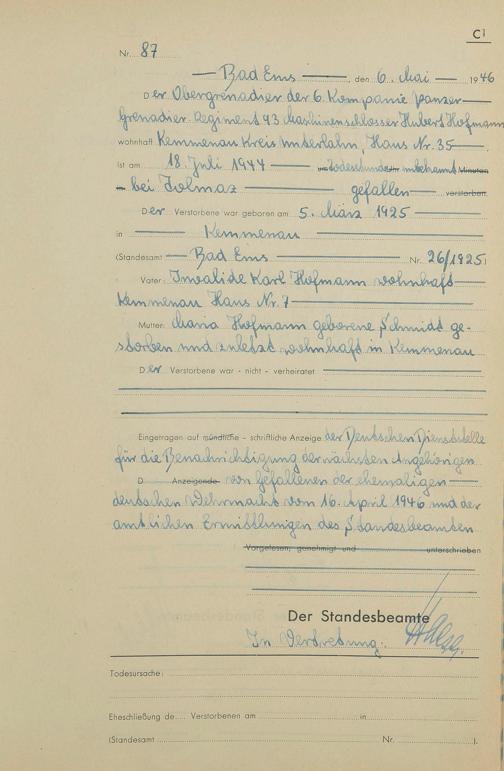 C1
Nr. 87
Bad Ems, den 6. Mai 1946
Der Obergrenadier der 6. Kompanie Panzer-
Grenadier Regiment 43 Maschinenschlosser Hubert Hofmann
wohnhaft Kemmenau Kreis Unterlahn, Haus Nr. 35
ist am 18. Juli 1944 Todesstunde unbekannt Minuten
bei gefallen verstorben.
Der Verstorbene war geboren am 5. März 1925
in Kemmenau
(Standesamt Bad Ems Nr. 26/1925)
Vater: Invalide Karl Hofmann wohnhaft
Kemmenau Haus Nr. 7
Mutter: Maria Hofmann geborene Schmidt ge-
storben und zuletzt wohnhaft in Kemmenau
Der Verstorbene war - nicht - verheiratet
Eingetragen auf mündliche - schriftliche Anzeige der Deutschen Dienststelle
für die Benachrichtigung der nächsten Angehörigen
D Anzeigende von Gefallenen der ehemaligen
deutschen Wehrmacht vom 16. April 1946 und der
amtlichen Ermittlungen des Standesbeamten
Vorgelesen, genehmigt und unterschrieben
Der Standesbeamte
In Vertretung:
Todesursache:
Eheschließung de.... Verstorbenen am in
(Standesamt Nr. ).